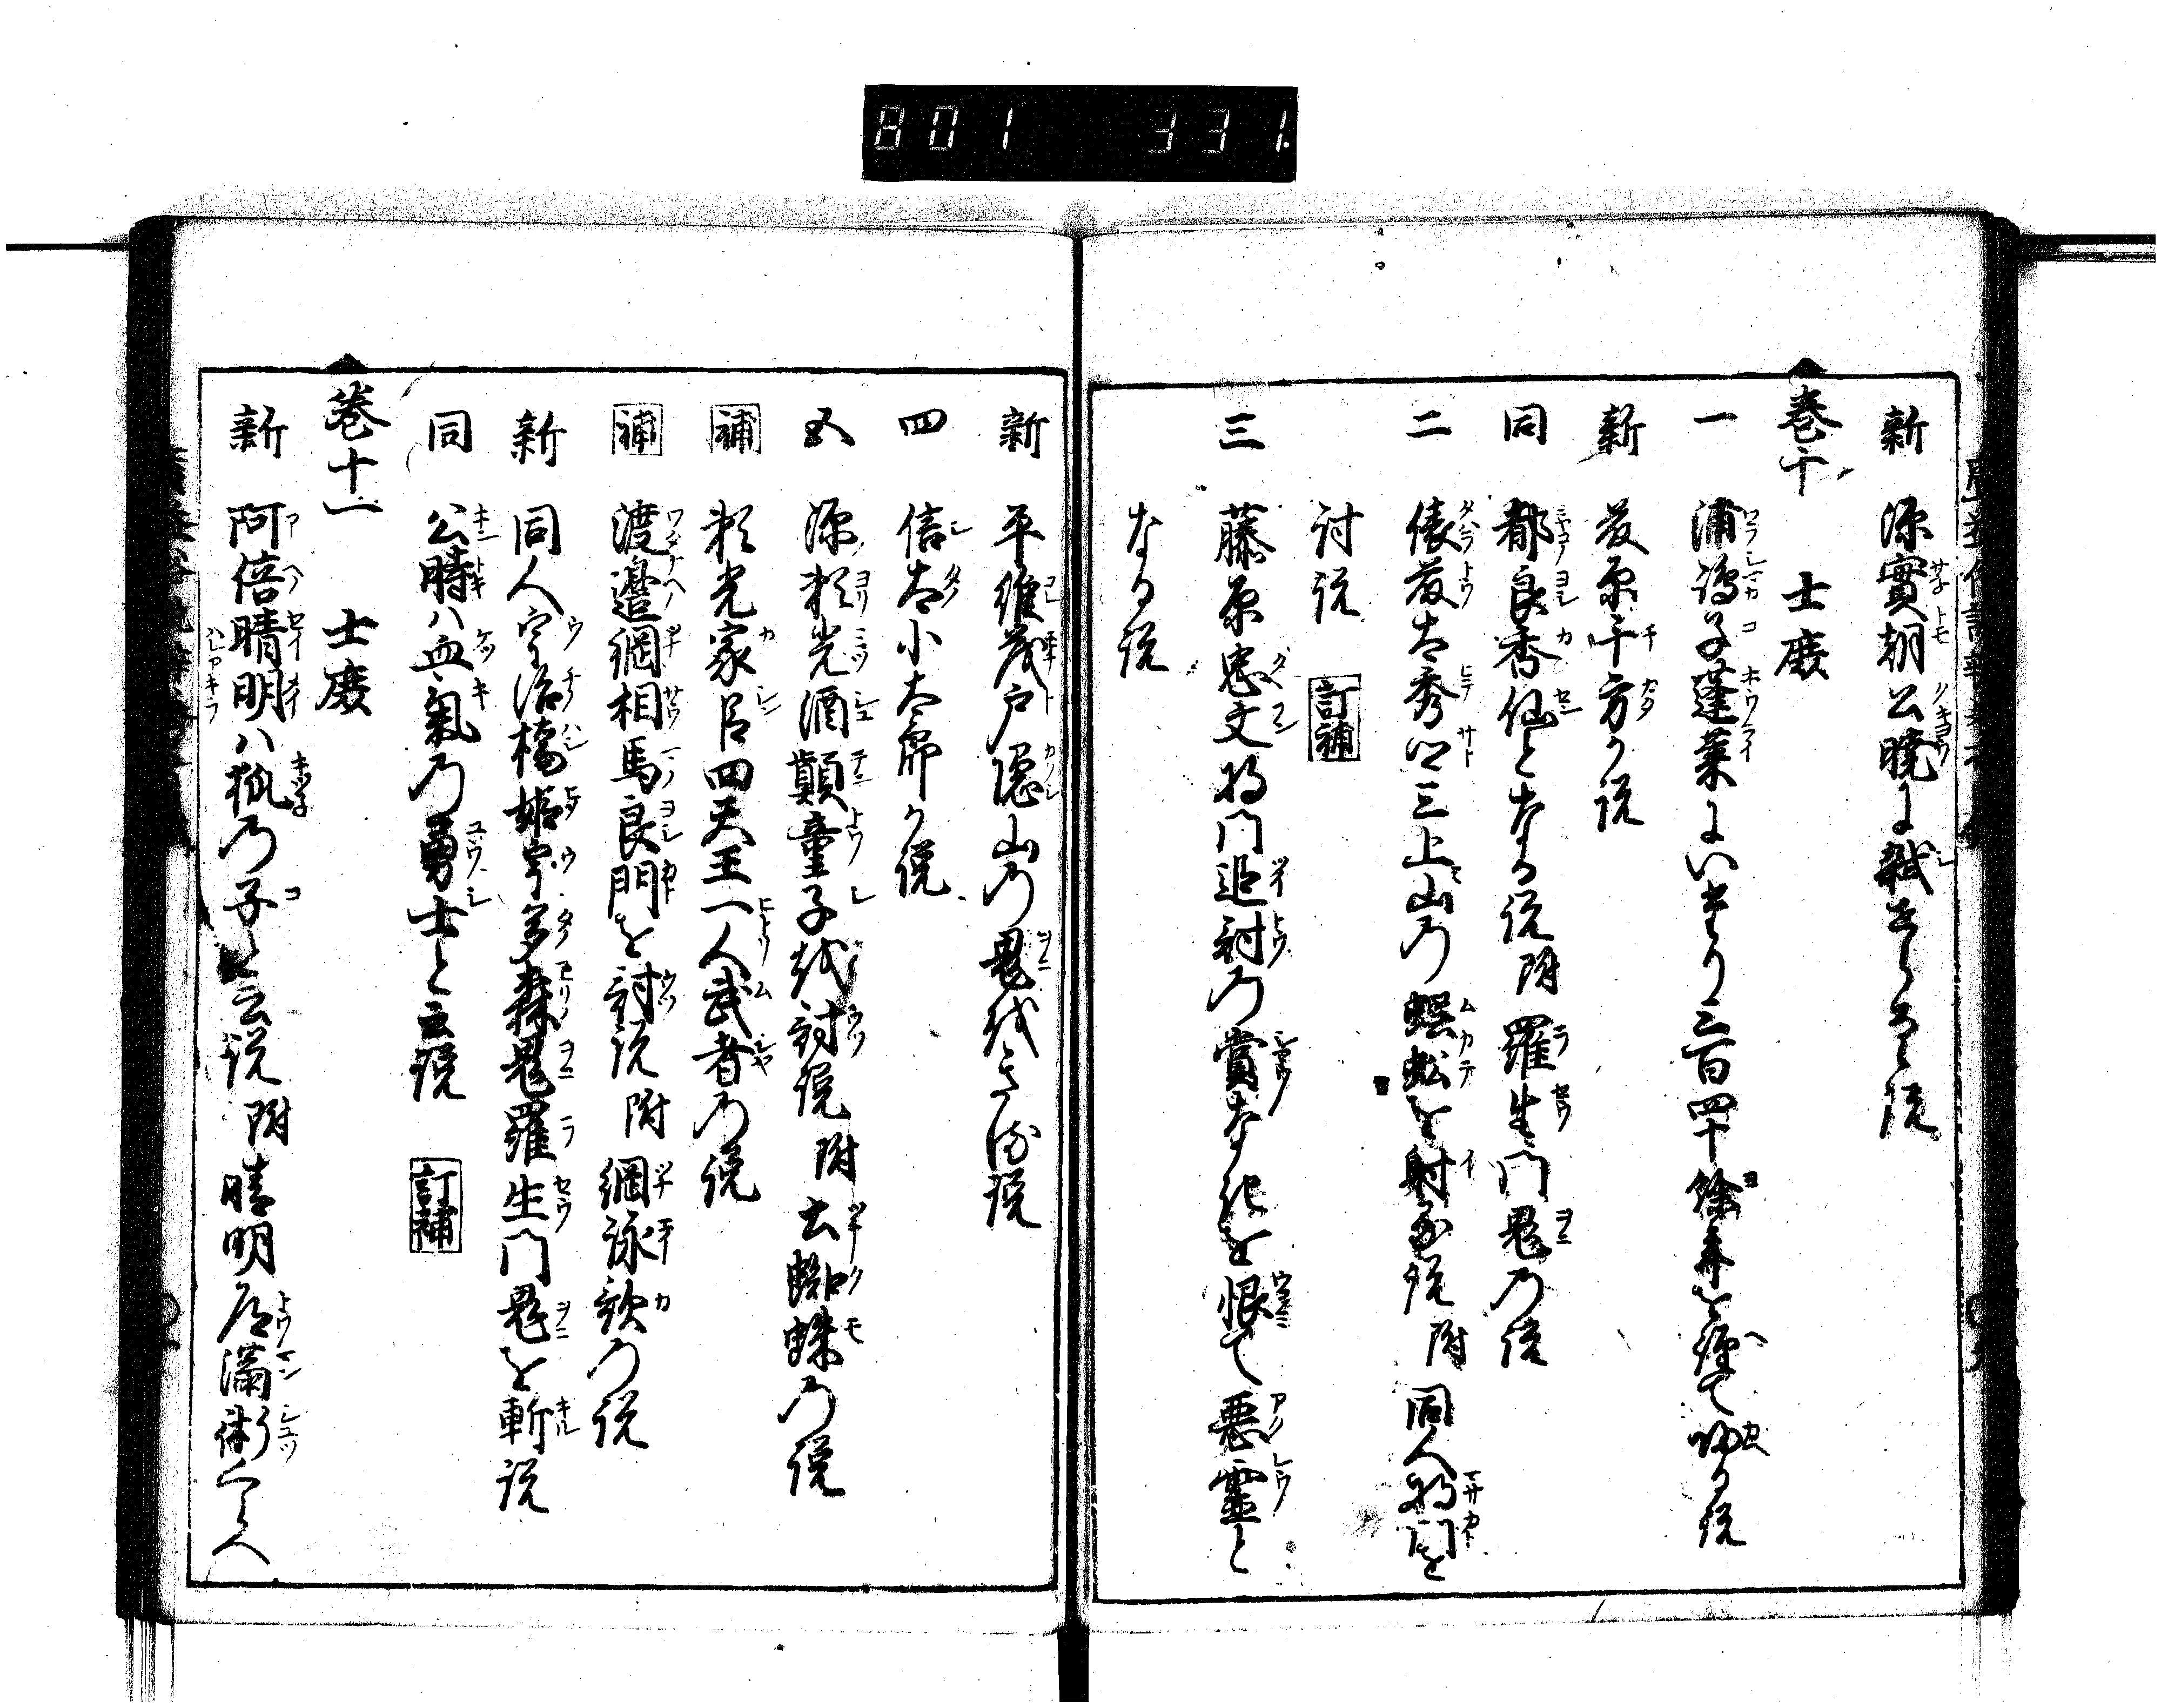 801 331.
新 源實朝公曉に弑せらるゝ説
巻十 士庶
一 浦嶋子蓬莱にいたり三百四十餘年を經て帰る説
新 藤原千方か説
同 都良香仙となる説 附 羅生門鬼の説
二 俵藤太秀郷三上山の蜈蚣を射る説 附 同人将門を
討説 訂補
三 藤原忠文将門追討の賞なきを恨て悪靈と
なる説
新 平維茂戸隠山の鬼をころす説
四 信太小太郎か説
五 源頼光酒顛童子を討説 附 土蜘蛛の説
補 頼光家臣四天王一人武者の説
補 渡邉綱相馬良門を討説 附 綱詠歌の説
新 同人宇治橋姫宇多森鬼羅生門鬼を斬説
同 公時ハ血氣の勇士と云説 訂補
巻十一 士庶
新 阿倍晴明ハ狐の子と云説 附 晴明道満術くらへ